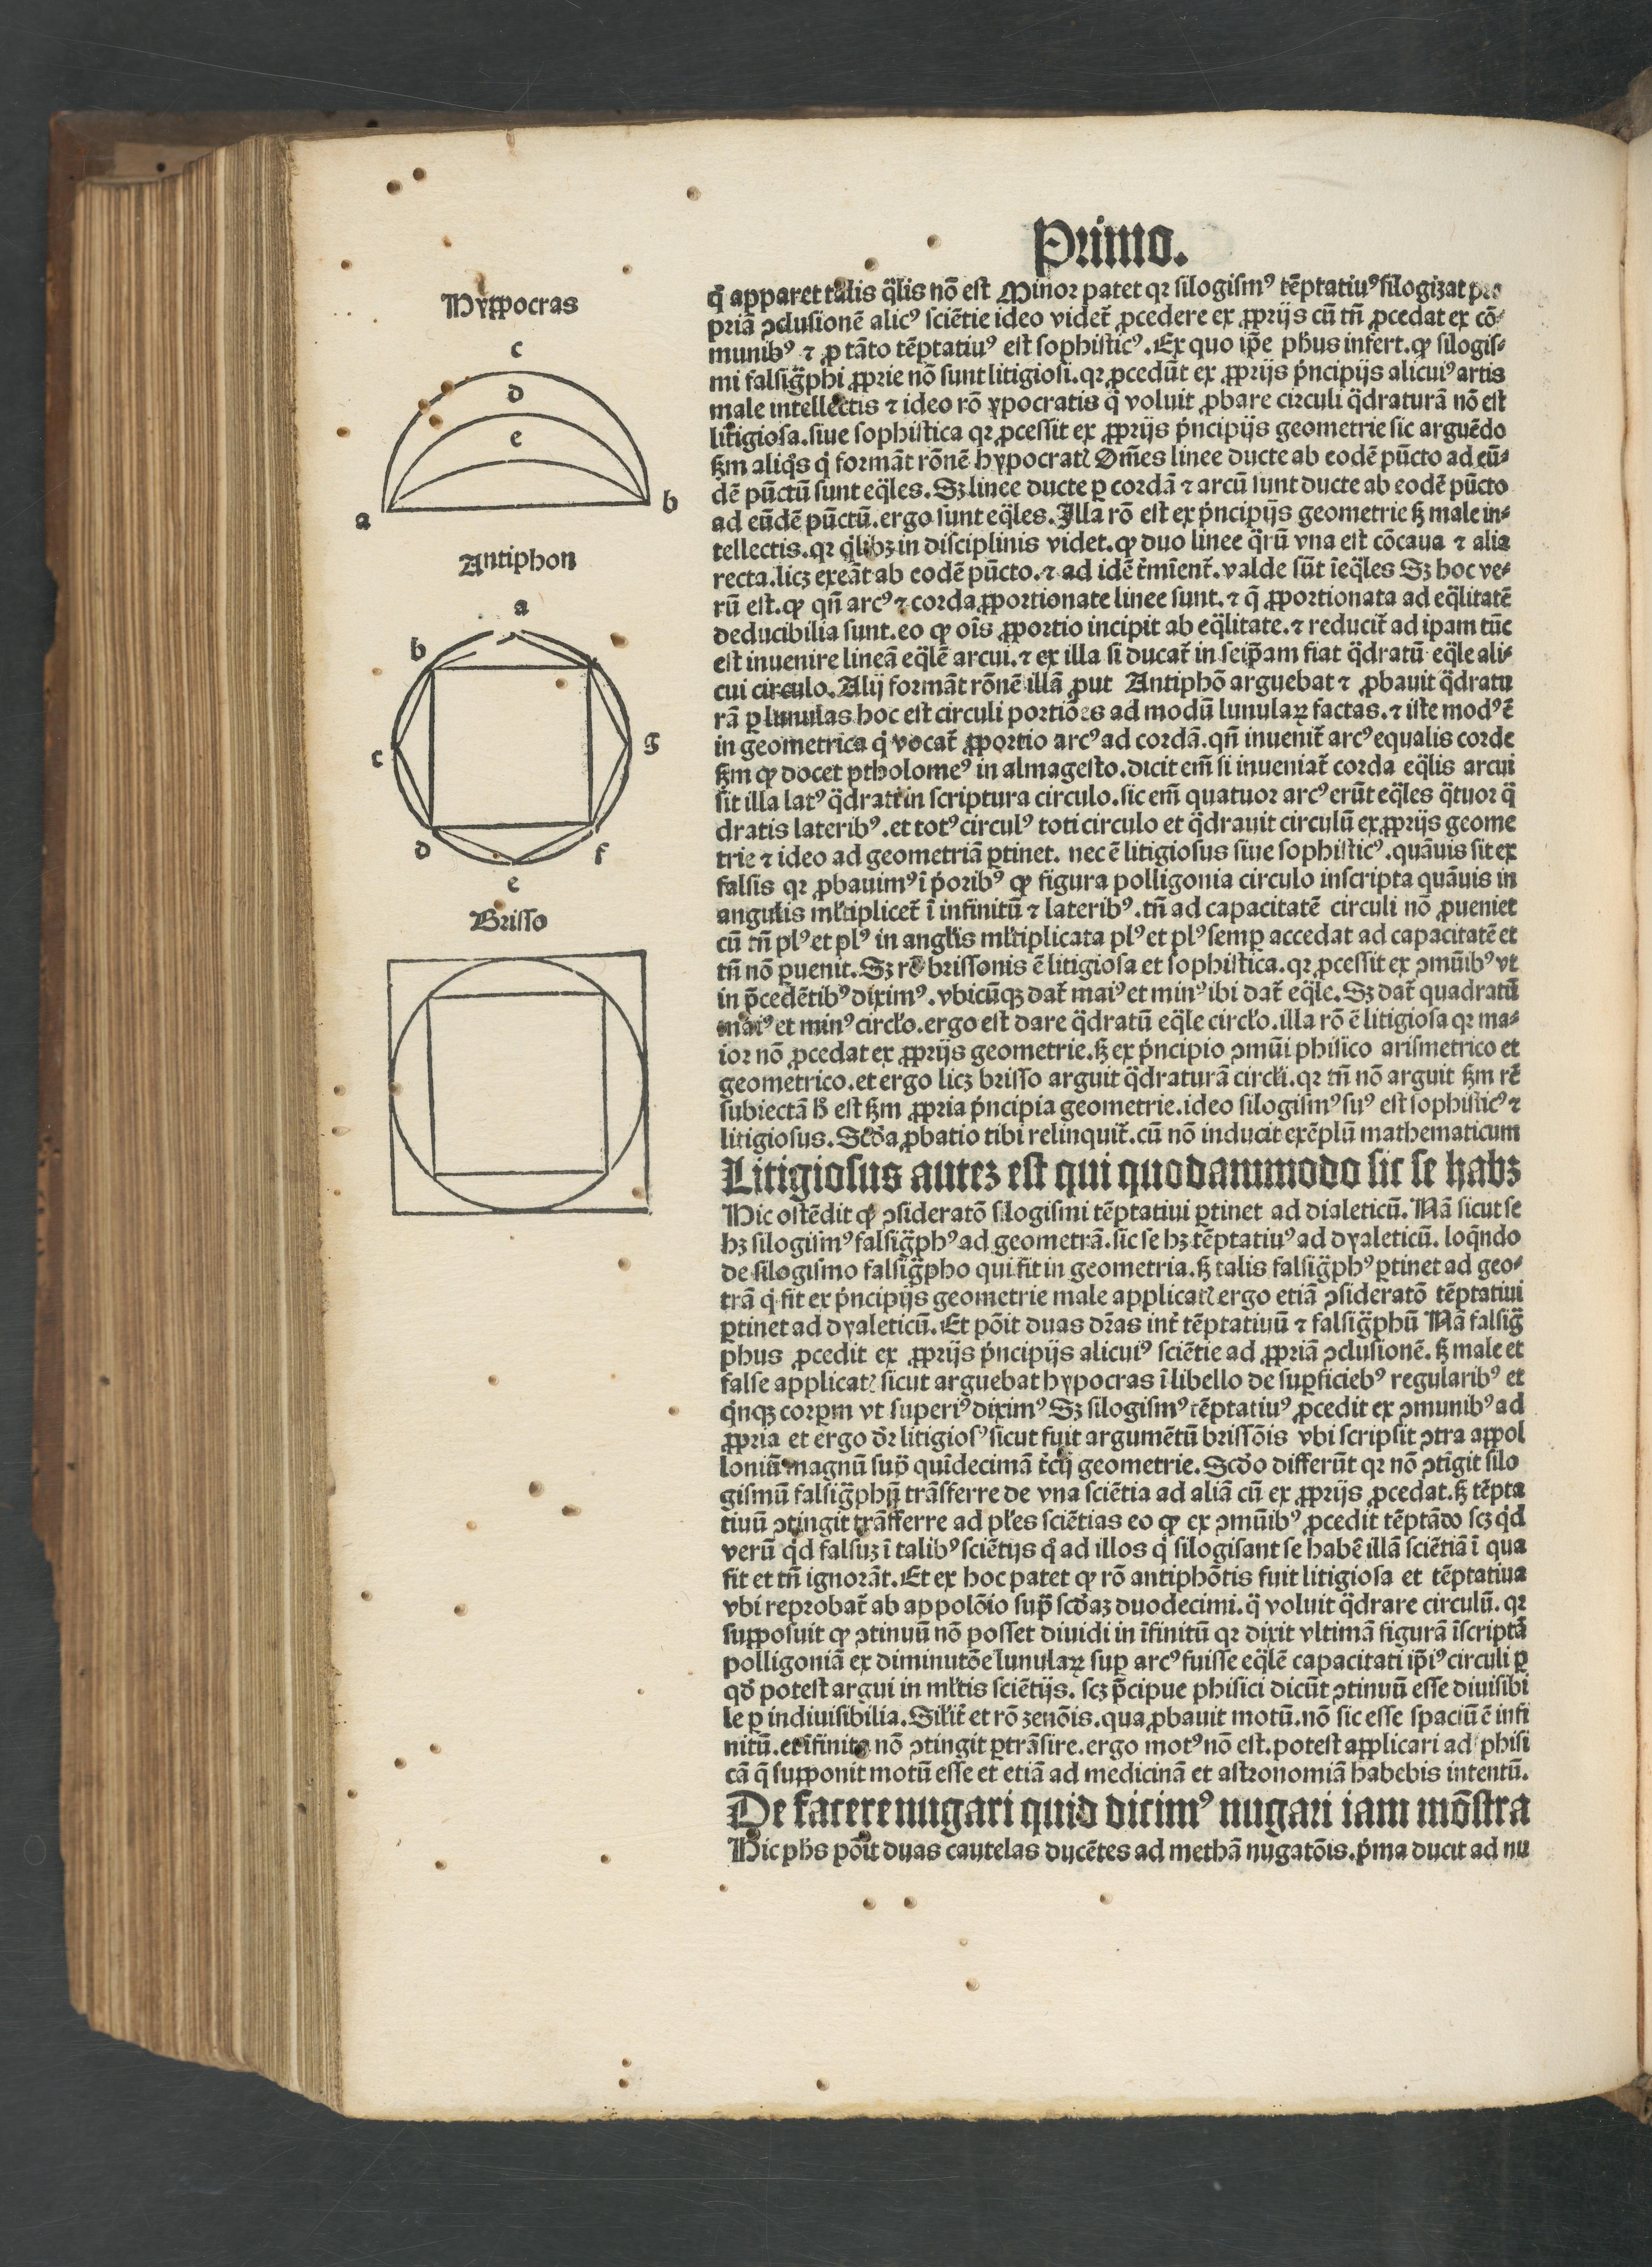 Primo.
Hyppocras
c
d
e
a
b
Antiphon
a
b
c
g
d
f
e
Brisso
qͥ apparet talis q̃lis nō est Minor patet qꝛ silogismꝰ tēptatiuꝰ silogizat
priā ɔclusionē alicꝰ sciētie ideo videt̃ ꝓcedere ex ꝓprijs cū tñ ꝓcedat ex cō⸗
munibꝰ ⁊ ꝓ tāto tēptatiuꝰ est sophisticꝰ. Ex quo ip̄e ph̄us infert. ꝙ silogis⸗
mi falsig̃phi ꝓprie nō sunt litigiosi. qꝛ ꝓcedūt ex ꝓprijs pͥncipijs alicuiꝰ artis
male intellectis ⁊ ideo rō ypocratis q̃ voluit ꝓbare circuli q̃draturā nō est
litigiosa. siue sophistica qꝛ ꝓcessit ex ꝓprijs pͥncipijs geometrie sic arguēdo
ẜm aliqͥs qͥ formāt rōnē hypocratꝭ Om̄es linee ducte ab eodē pūcto ad eū⸗
dē pūctū sunt eq̃les. Sꝫ linee ducte ꝑ cordā ⁊ arcū sunt ducte ab eodē pūcto
ad eūdē pūctū. ergo sunt eq̃les. Illa rō est ex pͥncipijs geometrie ẜꝫ male in⸗
tellectis. qꝛ qͥlibꝫ in disciplinis videt. ꝙ duo linee q̃rū vna est cōcaua ⁊ alia
recta. licꝫ exeāt ab eodē pūcto. ⁊ ad idē t̃mīent̃. valde sūt ieq̃les Sꝫ hoc ve⸗
rū est. ꝙ qñ arcꝰ ⁊ corda ꝓportionate linee sunt. ⁊ q̃ ꝓportionata ad eq̃litatē
deducibilia sunt. eo ꝙ oīs ꝓportio incipit ab eq̃litate. ⁊ reducit̃ ad ipam tūc
est inuenire lineā eq̃lē arcui. ⁊ ex illa si ducat̃ in seip̄am fiat q̃dratū eq̃le ali⸗
cui circulo. Alij formāt rōnē illā ꝓut Antiphō arguebat ⁊ ꝓbauit q̃dratu
rā ꝑ lunulas hoc est circuli portiōes ad modū lunulaꝝ factas. ⁊ iste modꝰ ē
in geometrica qͥ vocat̃ ꝓportio arcꝰ ad cordā. qñ inuenit̃ arcꝰ equalis corde
ẜm ꝙ docet ptholomeꝰ in almagesto. dicit em̄ si inueniat̃ corda eq̃lis arcui
sit illa latꝰ q̃drati in scriptura circulo. sic em̄ quatuor arcꝰ erūt eq̃les q̃tuor q̃
dratis lateribꝰ. et totꝰ circulꝰ toti circulo et q̃drauit circulū ex ꝓprijs geome
trie ⁊ ideo ad geometriā ꝑtinet. nec ē litigiosus siue sophisticꝰ. quāuis sit ex
falsis qꝛ ꝓbauimꝰ ī pͥoribꝰ ꝙ figura polligonia circulo inscripta quāuis in
angulis ml̃tiplicet̃ ī infinitū ⁊ lateribꝰ. tñ ad capacitatē circuli nō ꝓueniet
cū tñ plꝰ et plꝰ in angl̃is ml̃tiplicata plꝰ et plꝰ semꝑ accedat ad capacitatē et
tñ nō ꝑuenit. Sꝫ rō brissonis ē litigiosa et sophistica. qꝛ ꝓcessit ex ɔmūibꝰ vt
in p̄cedētibꝰ diximꝰ. vbicūqꝫ dat̃ maiꝰ et minꝰ ibi dat̃ eq̃le. Sꝫ dat̃ quadratū
maiꝰ et minꝰ circl̃o. ergo est dare q̃dratū eq̃le circl̃o. illa rō ē litigiosa qꝛ ma⸗
ior nō ꝓcedat ex ꝓprijs geometrie. ẜꝫ ex pͥncipio ɔmūi phisico arismetrico et
geometrico. et ergo licꝫ brisso arguit q̃draturā circl̃i. qꝛ tñ nō arguit ẜm rē
subiectā h̄ est ẜm ꝓpria pͥncipia geometrie. ideo silogismꝰ suꝰ est sophisticꝰ ⁊
litigiosus. Scd̄a ꝓbatio tibi relinquit̃. cū nō inducit exēplū mathematicum
Litigiosus autez est qui quodammodo sic se habꝫ
Hic ostēdit ꝙ ɔsideratō silogismi tēptatiui ꝑtinet ad dialeticū. Nā sicut se
hꝫ silogismꝰ falsig̃phꝰ ad geometrā. sic se hꝫ tēptatiuꝰ ad dyaleticū. loq̃ndo
de silogismo falsig̃pho qui fit in geometria. ẜꝫ talis falsig̃phꝰ ꝑtinet ad geo⸗
trā qͥ fit ex pͥncipijs geometrie male applicatꝭ ergo etiā ɔsideratō tēptatiui
ꝑtinet ad dyaleticū. Et pōit duas dr̄as int̃ tēptatiuū ⁊ falsig̃phū Nā falsig̃
phus ꝓcedit ex ꝓprijs pͥncipijs alicuiꝰ sciētie ad ꝓpriā ɔclusionē. ẜꝫ male et
false applicatꝭ sicut arguebat hypocras ī libello de suꝑficiebꝰ regularibꝰ et
qͥnqꝫ corꝑm vt superiꝰ diximꝰ Sꝫ silogismꝰ tēptatiuꝰ ꝓcedit ex ɔmunibꝰ ad
ꝓpria et ergo dr̄ litigiosꝰ sicut fuit argumētū brissōis vbi scripsit ɔtra appol
loniū magnū sup̄ quīdecimā t̃cij geometrie. Scd̄o differūt qꝛ nō ɔtīgit silo
gismū falsig̃phū trāsferre de vna sciētia ad aliā cū ex ꝓprijs ꝓcedat. ẜꝫ tēpta
tiuū ɔtingit trāsferre ad pl̃es sciētias eo ꝙ ex ɔmūibꝰ ꝓcedit tēptādo scꝫ qͥd
verū qͥd falsuꝫ ī talibꝰ sciētijs qͥ ad illos qͥ silogisant se habē illā sciētiā ī qua
fit et tñ ignorāt. Et ex hoc patet ꝙ rō antiphōtis fuit litigiosa et tēptatiua
vbi reprobat̃ ab appolōio sup̄ scd̄aꝫ duodecimi. q̃ voluit q̃drare circulū. qꝛ
supposuit ꝙ ɔtinuū nō posset diuidi in īfinitū qꝛ dixit vltimā figurā īscriptā
polligoniā ex diminutōe lunulaꝝ suꝑ arcꝰ fuisse eq̃lē capacitati ip̄iꝰ circuli ꝑ
qd̄ potest argui in ml̃tis sciētijs. scꝫ p̄cipue phisici dicūt ɔtinuū esse diuisibi
le ꝑ indiuisibilia. Sil̃it̃ et rō zenōis. qua ꝓbauit motū. nō sic esse spaciū ē infi
nitū. et īfinita nō ɔtingit ꝑtrāsire. ergo motꝰ nō est. potest applicari ad phisi
cā q̃ supponit motū esse et etiā ad medicinā et astronomiā habebis intentū.
De facere nugari quid dicimꝰ nugari iam mōstra
Hic phs pōit duas cautelas ducētes ad methā nugatōis. pͥma ducit ad nu